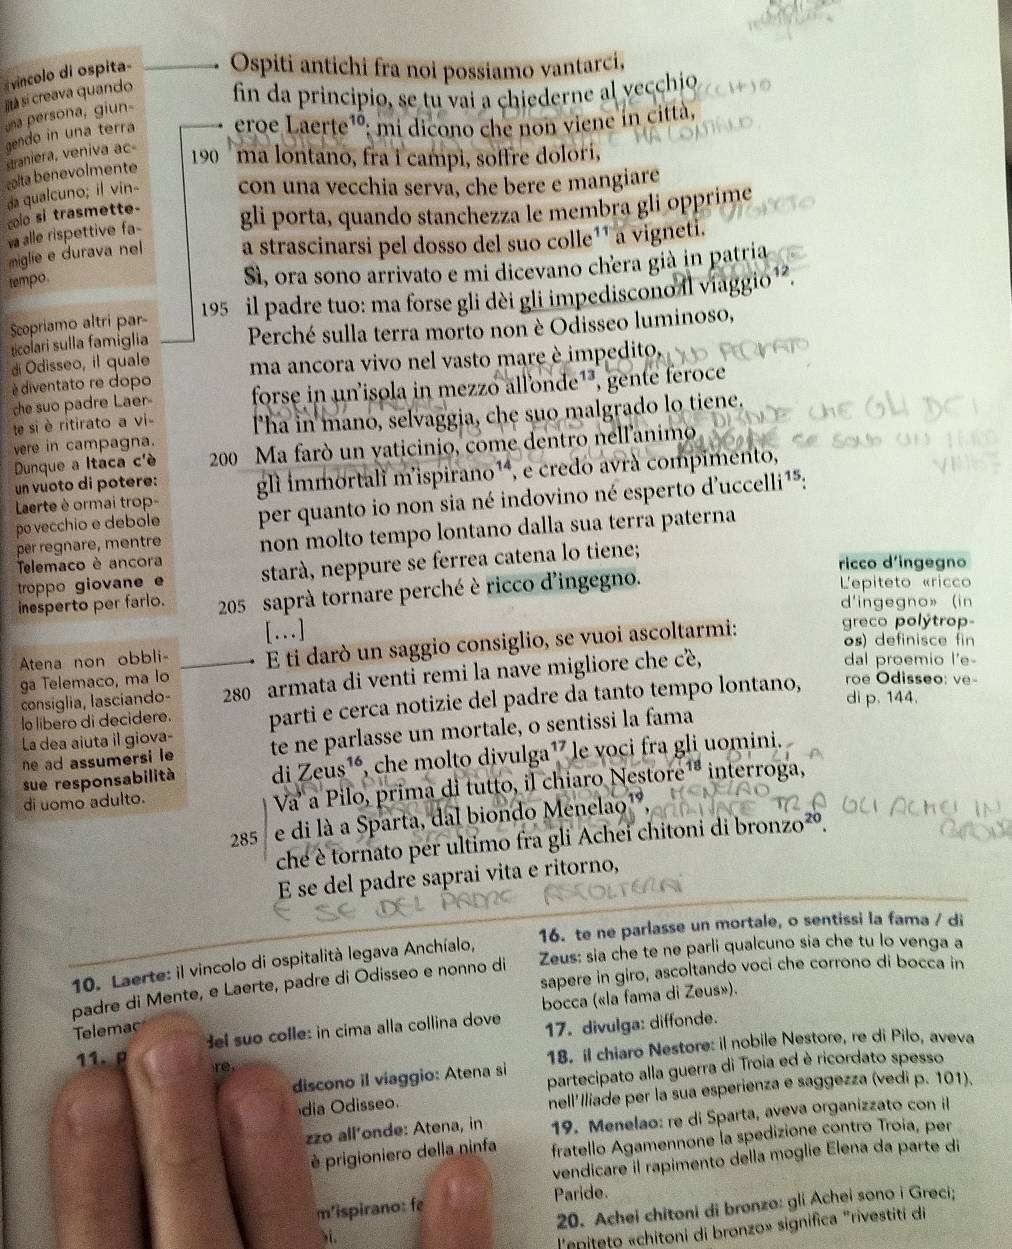 il vincolo di ospita-
lità si creava quando
una persona, giun-
gendo in una terra
straniera, veniva ac-
colta benevolmente
da qualcuno; il vin-
colo si trasmette-
va alle rispettive fa-
miglie e durava nel
tempo.
Scopriamo altri par-
ticolari sulla famiglia
di Odisseo, il quale
è diventato re dopo
che suo padre Laer-
te si è ritirato a vi-
vere in campagna.
Dunque a Itaca c'è
un vuoto di potere:
Laerte è ormai trop-
po vecchio e debole
per regnare, mentre
Telemaco è ancora
troppo giovane e
inesperto per farlo.
Atena non obbli-
ga Telemaco, ma lo
consiglia, lasciando-
lo libero di decidere.
La dea aiuta il giova-
ne ad assumersi le
sue responsabilità
di uomo adulto.
Ospiti antichi fra noi possiamo vantarci,
fin da principio, se tu vai a chiederne al vecchio
eroe Laerte¹⁰; mi dicono che non viene in città,
190 ma lontano, fra i campi, soffre dolori,
con una vecchia serva, che bere e mangiare
gli porta, quando stanchezza le membra gli opprime
a strascinarsi pel dosso del suo colle¹¹ a vigneti.
Sì, ora sono arrivato e mi dicevano ch'era già in patria
195 il padre tuo: ma forse gli dèi gli impediscono il viaggio¹².
Perché sulla terra morto non è Odisseo luminoso,
ma ancora vivo nel vasto mare è impedito,
forse in un'isola in mezzo all'onde¹³, gente feroce
l'ha in mano, selvaggia, che suo malgrado lo tiene.
200 Ma farò un vaticinio, come dentro nell'animo
gli immortali m'ispirano¹⁴, e credo avrà compimento,
per quanto io non sia né indovino né esperto d'uccelli¹⁵:
non molto tempo lontano dalla sua terra paterna
starà, neppure se ferrea catena lo tiene;
205 saprà tornare perché è ricco d'ingegno.
[...]
E ti darò un saggio consiglio, se vuoi ascoltarmi:
280 armata di venti remi la nave migliore che c'è,
parti e cerca notizie del padre da tanto tempo lontano,
te ne parlasse un mortale, o sentissi la fama
di Zeus¹⁶, che molto divulga¹⁷ le voci fra gli uomini.
Va' a Pilo, prima di tutto, il chiaro Nestore¹⁸ interroga,
285 e di là a Sparta, dal biondo Menelao¹⁹,
che è tornato per ultimo fra gli Achei chitoni di bronzo²⁰.
E se del padre saprai vita e ritorno,
E SE DEL PADRE ASCOLTERAI
ricco d'ingegno
L'epiteto «ricco
d'ingegno» (in
greco polýtrop-
os) definisce fin
dal proemio l'e-
roe Odisseo: ve-
di p. 144.
10. Laerte: il vincolo di ospitalità legava Anchíalo,
padre di Mente, e Laerte, padre di Odisseo e nonno di
Telemac
11. p del suo colle: in cima alla collina dove
re.
discono il viaggio: Atena si
dia Odisseo.
zzo all'onde: Atena, in
è prigioniero della ninfa
m'ispirano: fe
i.
16. te ne parlasse un mortale, o sentissi la fama / di
Zeus: sia che te ne parli qualcuno sia che tu lo venga a
sapere in giro, ascoltando voci che corrono di bocca in
bocca («la fama di Zeus»).
17. divulga: diffonde.
18. il chiaro Nestore: il nobile Nestore, re di Pilo, aveva
partecipato alla guerra di Troia ed è ricordato spesso
nell'Iliade per la sua esperienza e saggezza (vedi p. 101).
19. Menelao: re di Sparta, aveva organizzato con il
fratello Agamennone la spedizione contro Troia, per
vendicare il rapimento della moglie Elena da parte di
Paride.
20. Achei chitoni di bronzo: gli Achei sono i Greci;
l'epiteto «chitoni di bronzo» significa "rivestiti di